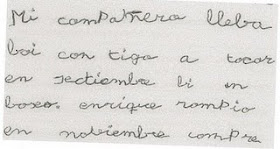 Mi compañera lleba
boi contigo a tocar
en sectiembre bi un
boxeo. enrique rompio
en nobiembre compre